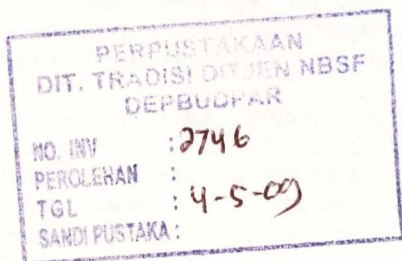 PERPUSTAKAAN
DIT. TRADISI DITJEN NBSF
DEPBUDPAR
NO. INV : 2746
PEROLEHAN :
TGL : 4-5-09
SANDI PUSTAKA :